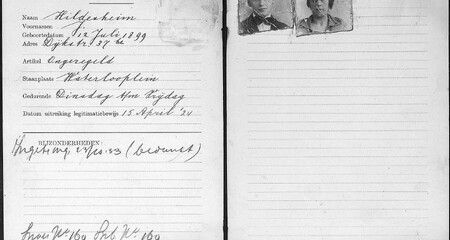 Naam Hildesheim
Voornamen
Geboortedatum 12 Juli 1899
Adres Dijkstr. 37
Artikel Ongeregeld
Staanplaats Waterlooplein
Gedurende Dinsdag t/m Vrijdag
Datum uitreiking legitimatiebewijs 15 April '24
BIJZONDERHEDEN:
(bedankt)
No. 160 No. 160